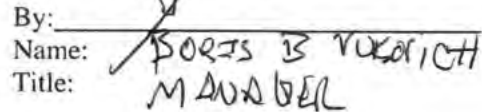 By:
Name: BORIS B VUKOVICH
Title: MANAGER